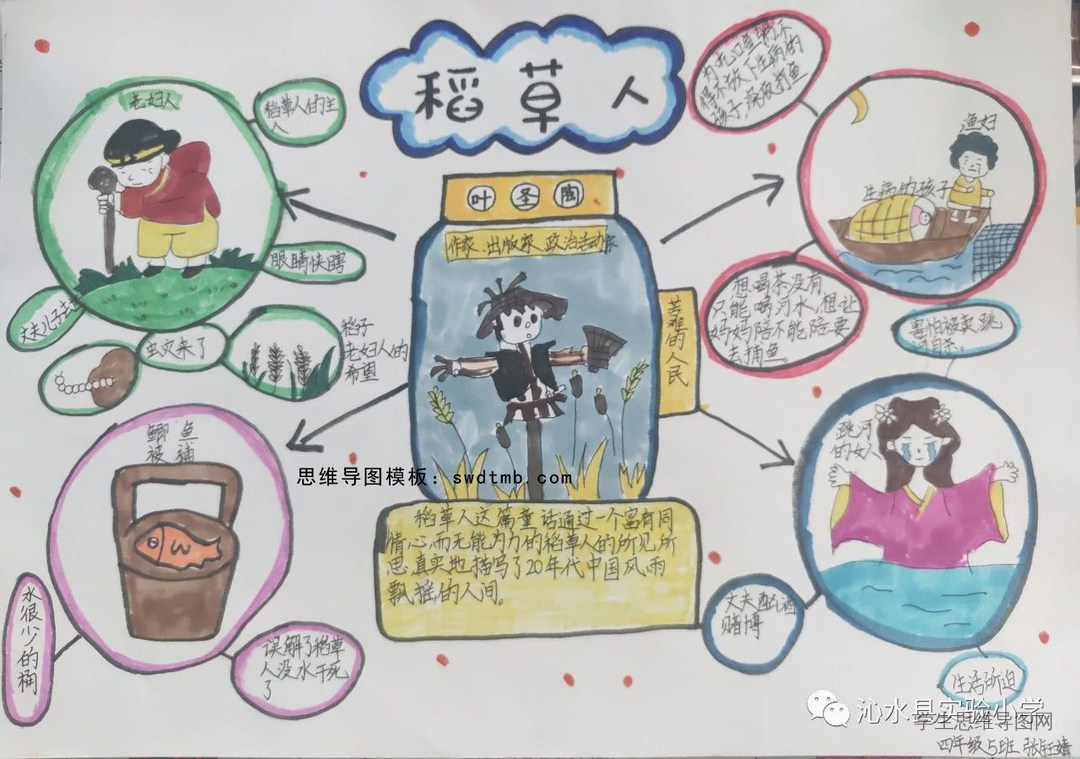 稻草人
叶圣陶
作家、出版家、政治活动家
苦难的人民
老妇人
稻草人的主
人
眼睛快瞎
丈夫儿子去世
虫灾来了
稻子
老妇人的
希望
渔妇
生病的孩子
为无口生粮不
得不放下生病的
孩子,深夜打鱼
想喝茶没有
只能喝河水,想让
妈妈陪不能陪要
去捕鱼
害怕被卖跳
自杀。
跳河
的女人
丈夫酗酒
赌博
生活所迫
鲫鱼
被捕
水很少的桶
误解了稻草
人没水干死
了
思维导图模板：swdtmb.com
稻草人这篇童话通过一个富有同
情心而无能为力的稻草人的所见所
思,真实地描写了20年代中国风雨
飘摇的人间。
沁水县实验小学
学生思维导图网
四年级5班 张钰婧